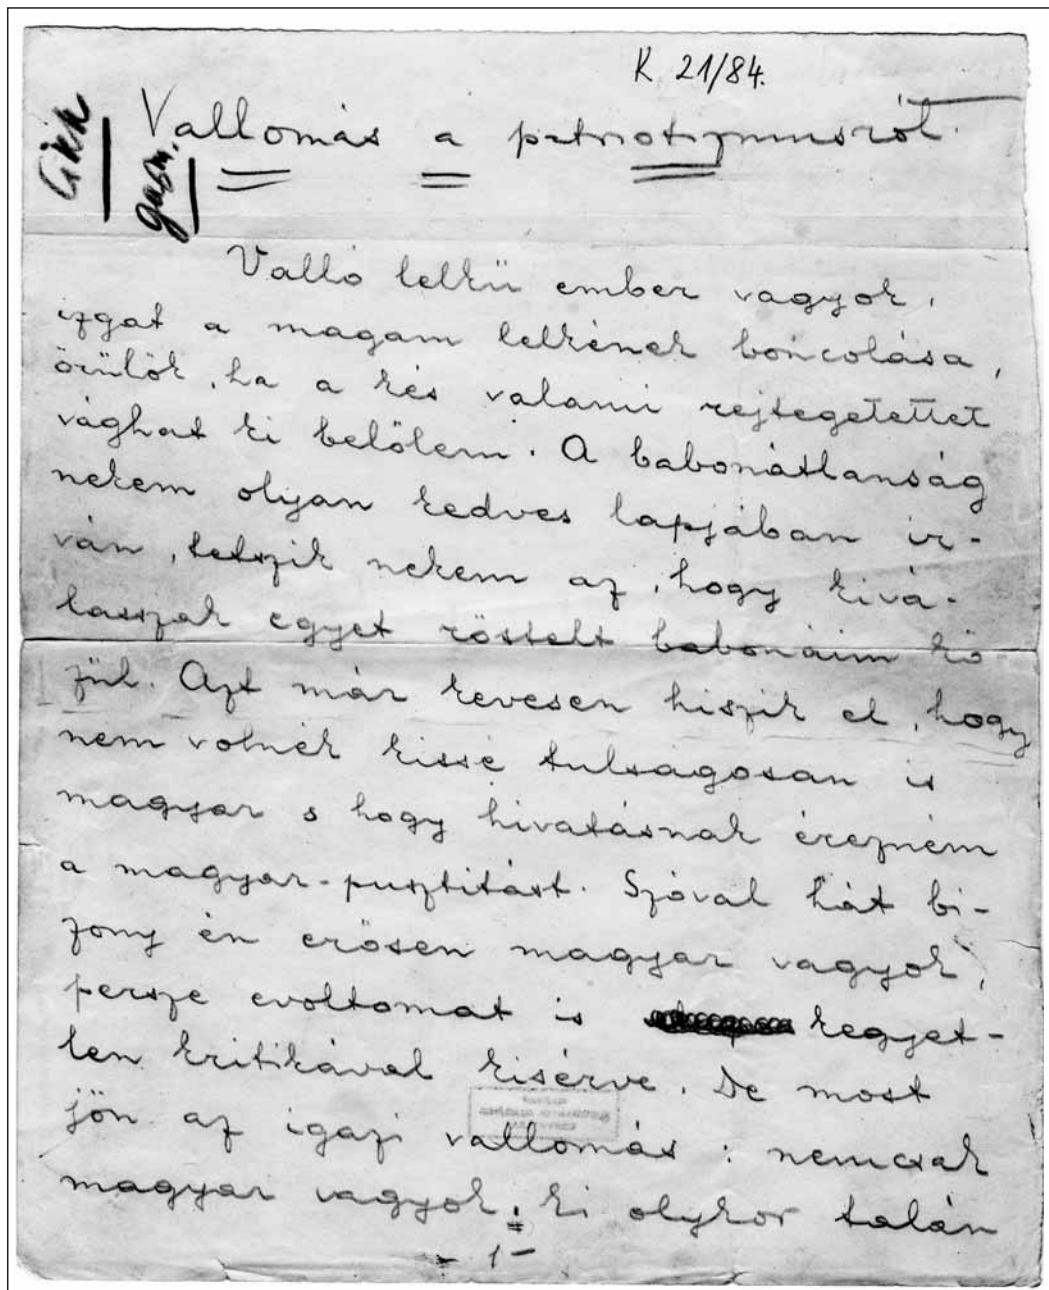 K. 21/84.
Cikk
garm.
Vallomás a patriotizmusról.
Valló lelkü ember vagyok,
izgat a magam lelkének boncolása,
örülök, ha a kés valami rejtegetettet
vághat ki belőlem. A babonátlanság
nekem olyan kedves lapjában ir-
ván, tetszik nekem az, hogy kivá-
lasszak egyet röstelt babonáim kö
zül. Azt már kevesen hiszik el, hogy
nem volnék kissé tulságosan is
magyar s hogy hivatásnak érezném
a magyar-pusztitást. Szóval hát bi-
zony én erősen magyar vagyok,
persze evoltomat is kegyet-
len kritikával kisérve. De most
jön az igazi vallomás: nemcsak
magyar vagyok, ki olykor talán
- 1 -